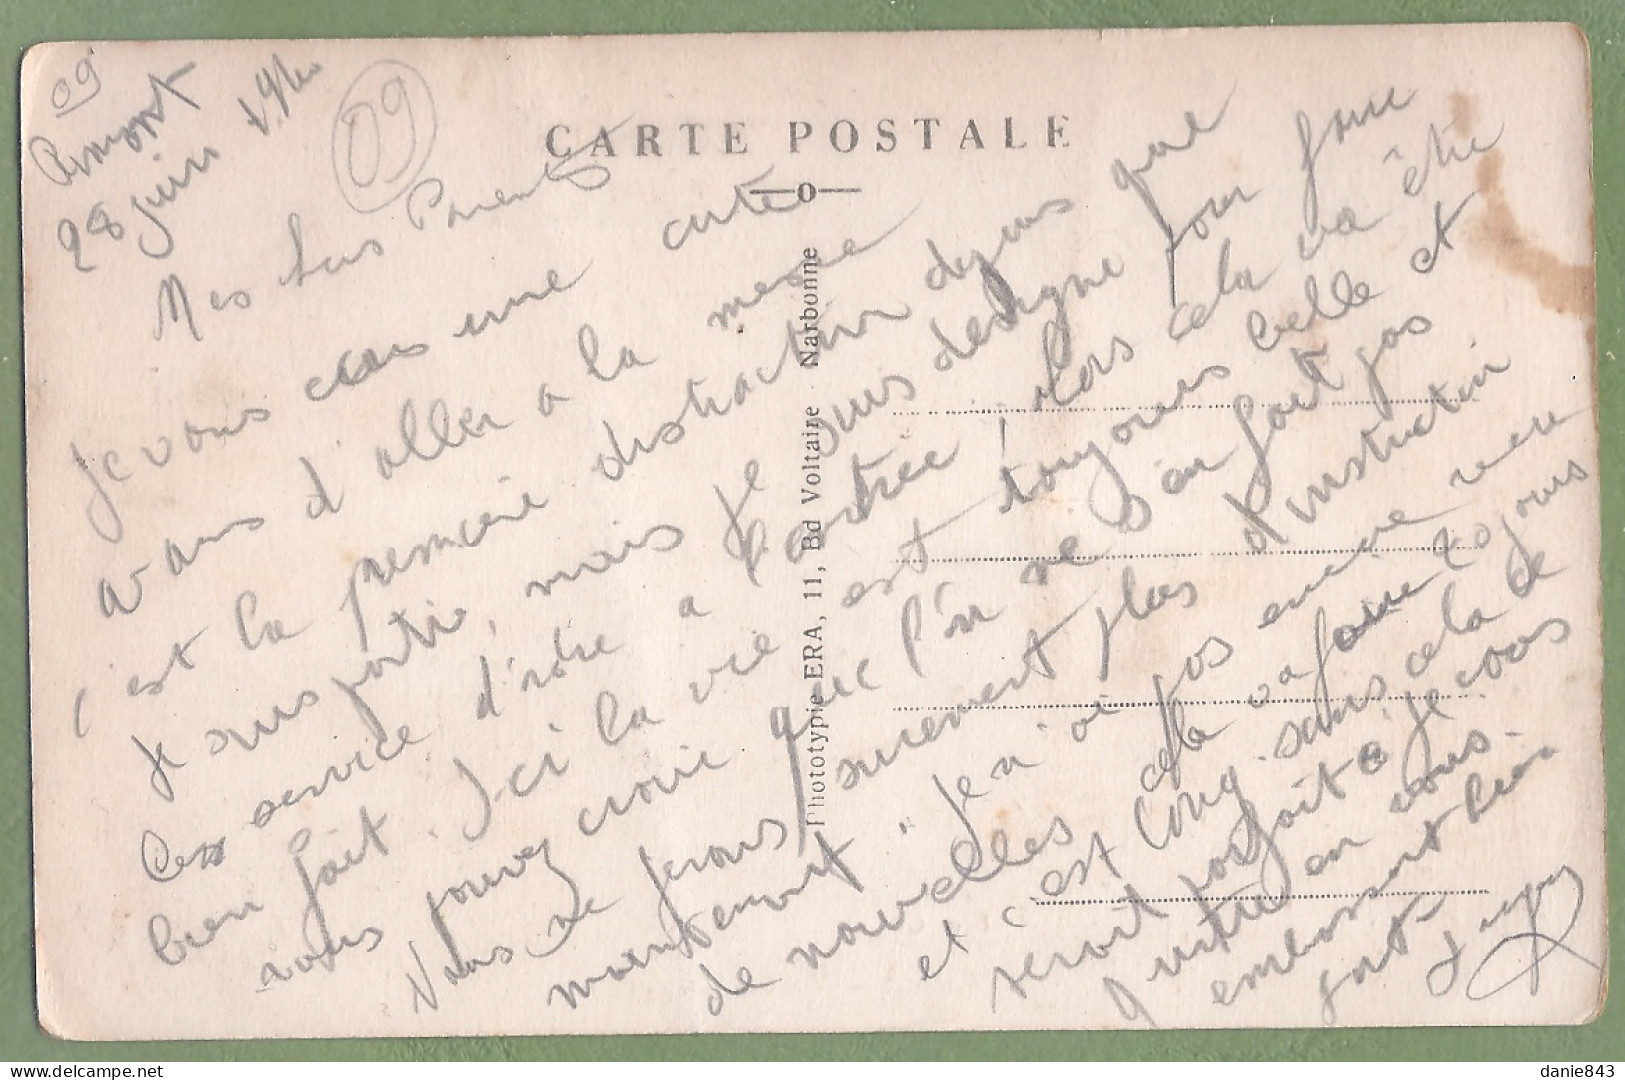 09
09
28 juin 1940
CARTE POSTALE
Mes Parents
Je vous une carte
avant d'aller a la messe
c'est la première distraction depuis que
je suis parti, mais je suis designe pour faire
le service d'ordre a l'entrée, alors cela va être
bien fait. Ici la vie est toujours belle et
vous pouvez croire que l'on ne s'en fait pas
Nous ne ferons surement plus d'instruction
maintenant. Je n'ai pas encore reçu
de nouvelles cela va faire 20 jours
et c'est long. sans cela ce
serait parfait. Je vous
quitte en vous
embrassant bien
fort.
Phototypie ERA, 11, Bd Voltaire - Narbonne
danie843